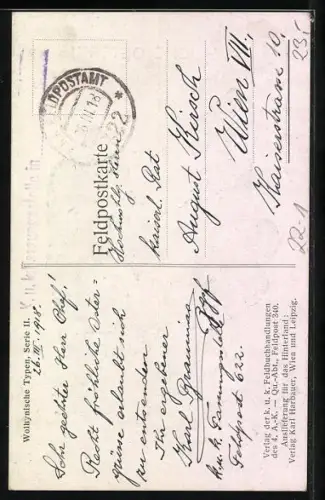 Wolhynische Typen, Serie II.
26. III. 1918.
Sehr geehrter Herr Chef!
Recht fröhliche Oster=
grüsse erlaubt sich
zu entsenden
Ihr ergebener
Feldpost 622
Verlag der k. u. k. Feldbuchhandlungen
des 4. A.-K. — Qu.-Abt., Feldpost 340.
Auslieferung für das Hinterland:
Verlag Karl Harbauer, Wien und Leipzig.
FELDPOSTAMT
Feldpostkarte
Hochwohlg. Herrn
kaiserl. Rat
August Kirsch
Wien VII.
Kaiserstrasse 10.
23.-
22-1